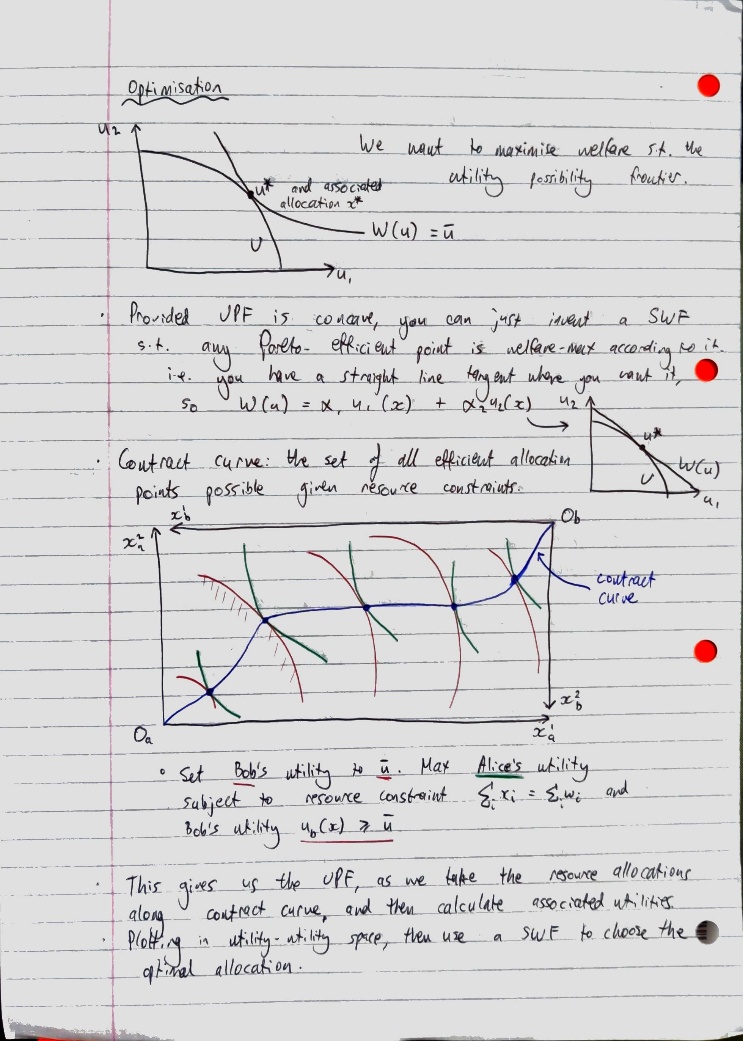 Optimisation
u₂
We want to maximise welfare s.t. the
utility possibility frontier.
u* and associated
allocation x*
W(u) = ū
U
u₁
· Provided UPF is concave, you can just invent a SWF
s.t. any Pareto-efficient point is welfare-max according to it.
i.e. you have a straight line tangent where you want it,
so W(u) = α₁ u₁(x) + α₂u₂(x)
u₂
u*
W(u)
U
u₁
· Contract curve: the set of all efficient allocation
points possible given resource constraints.
x¹b
Ob
x²a
contract
curve
x²b
Oa
x¹a
∘ Set Bob's utility to ū. Max Alice's utility
subject to resource constraint Σᵢ xᵢ = Σᵢ wᵢ and
Bob's utility u_b(x) ⩾ ū
· This gives us the UPF, as we take the resource allocations
along contract curve, and then calculate associated utilities
· Plotting in utility-utility space, then use a SWF to choose the
optimal allocation.